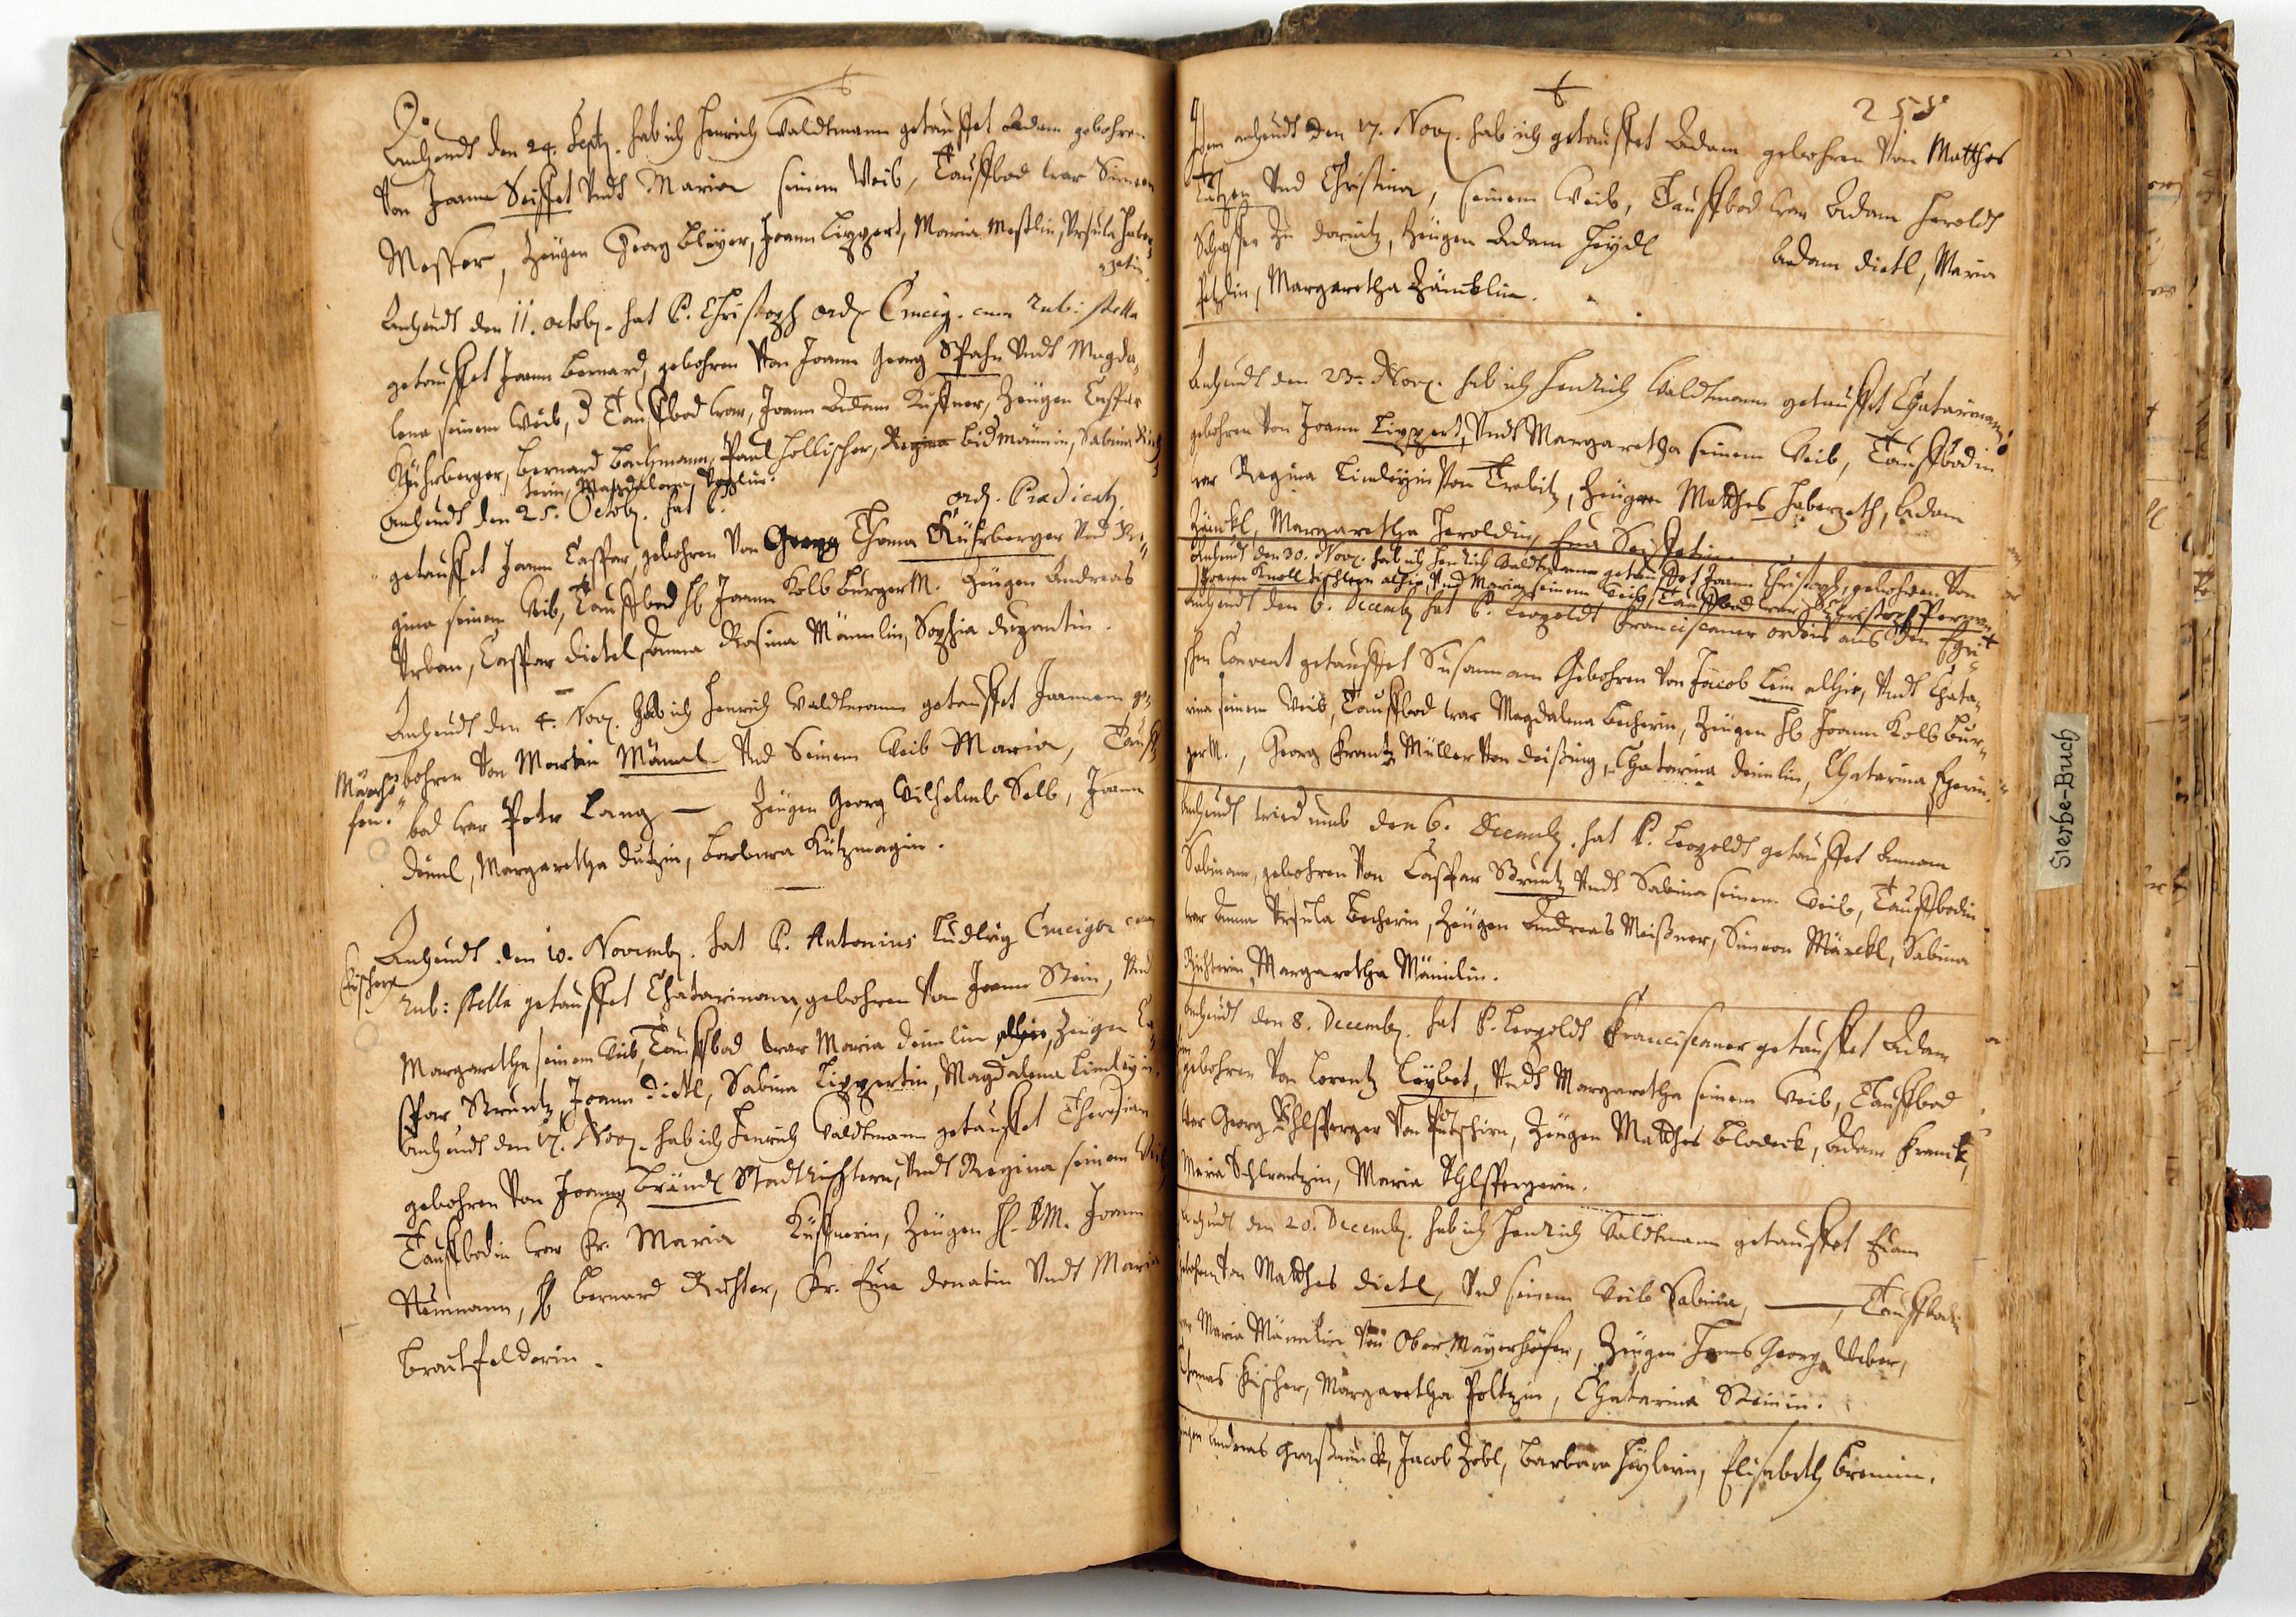 Anheudt den 24. Sept. hab ich Henrich Waldtmann getauffet Adam gebohren
Von Joann Seiffet Vndt Maria seinem Weib, Tauffbod war Simeon
Messer, Zeügen Georg Beÿer, Joann Lippert, Maria Mestlin, Vrsula Haber
zetin.
Anheudt den 11. octob. hat P. Christoph ord. Crucig. cum rub: stella
getauffet Joann Bernard, gebohren Von Joann Georg Spahn Vndt Magda,
lena seinem Weib, d Tauffbod war, Joann Adam Küffner, Zeügen Casspar
Kührberger, Bernard Bachmann, Paul Hollischer, Regina Bidmännin, Sabina Rich
terin, Magdalena
Anheudt den 25. Octob. hat P. ord. Prædicat.
getauffet Joann Casspar, gebohren Von Georg Thoma Kührberger Vnd Re,
gina seinem Weib, Tauffbod H Joann Kolb BurgerM. Zeügen Andreas
Vrban, Casspar Dietel, Anna Rosina Männlin, Sophia
Anheudt den 4. Nov. Hab ich Henrich Waldtmann getauffet Joannem ge,
bohren Von Martin Männl Vnd Seinem Weib Maria, Tauff
bod war Petr Lang — Zeügen Georg Wilhelmb Salb, Joann
Deiml, Margaretha Dutzin, Barbara Kützmagin.
Anheudt den 10. Novemb. hat P. Antonius Ludwig Cruciger cum
Fischern
rub: stella getauffet Chatarinam, gebohren Von Joann Stein, Vnd
Margaretha seinem Weib, Tauffbod war Maria Deimlin alhie, Zeügen Ca,
spar Bruntz, Joann Dietl, Sabina Lippertin, Magdalena Limleyin.
Anheudt den 17. Nov. hab ich Henrich Waldtmann getauffet Theresiam
gebohren Von Joann Brändl Stadtrichtern, Vndt Regina seinem Weib
Tauffbodin war Fr. Maria Küffnerin, Zeügen H. BM. Joann
Neumann, H Bernard Richter, Fr. Eva Donatin Vndt Maria
Brautfelderin.
255
Item anheudt den 17. Nov. hab ich getauffet Adam gebohren Von Matthes
Lutzen Vnd Christina, seinem Weib, Tauffbod war Adam Heroldt
Schaffer Zu Donitz, Zeügen Adam Heÿdl Adam Dietl, Maria
Petzlin, Margaretha Zäncklin.
Anheudt den 23. Nov. hab ich Henrich Waldtmann getauffet Chatarinam
gebohren Von Joann Lippert, Vndt Margaretha seinem Weib, Tauffbodin
war Regina Limleyin Von Trebitz, Zeügen Matthes Haberzeth, Adam
Zünckl, Margaretha Heroldin, Eva Seiffetin.
Anheudt den 30. Nov. hab ich Henrich Waldtmann getauffet Joann Christoph, gebohren Von
Joann Knoll Tischlern alhie, Vnd Maria seinem Weib, Tauffbod war Christoph
Anheudt den 6. Decemb. hat P. Leopoldt Franciscaner ordens aus den Egri,
schen Convent getauffet Susannam Gebohren Von Jacob Lein alhie, Vndt Chata,
rina seinem Weib, Tauffbod war Magdalena Becherin, Zeügen H Joann Kolb Bur,
gerM., Georg Frantz Müller Von Deissing, Chatarina Deimlin, Chatarina Egerin.
Anheudt widerumb den 6. Decemb. hat P. Leopoldt getauffet Annam
Sabinam, gebohren Von Casspar Bruntz Vndt Sabina seinem Weib, Tauffbodin
war Anna Vrsula Becherin, Zeügen Andreas Meißner, Simeon Märckl, Sabina
Richterin, Margaretha Männlin.
Anheudt den 8. Decemb. hat P. Leopoldt Franciscaner getauffet Adam
gebohren Von Lorentz Leÿbet, Vndt Margaretha seinem Weib, Tauffbod
war Georg Vhlsperger Von Putschirn, Zeügen Matthes Blodeck, Adam Franck,
Maria Schwartzin, Maria Vhlspergerin.
Anheudt den 20. Decemb. hab ich Henrich Waldtmann getauffet Evam
gebohren Von Matthes Dietl, Vnd seinem Weib Sabina, —, Tauffbodin
war Maria Männlin Von Ober Mayerhöfen, Zeügen Hans Georg Weber,
Thomas Fischer, Margaretha Poltzin, Chatarina Steinin.
Zeügen Andreas Graßmück, Jacob Zobl, Barbara Heÿlerin, Elisabeth Bremin.
Sterbe-Buch